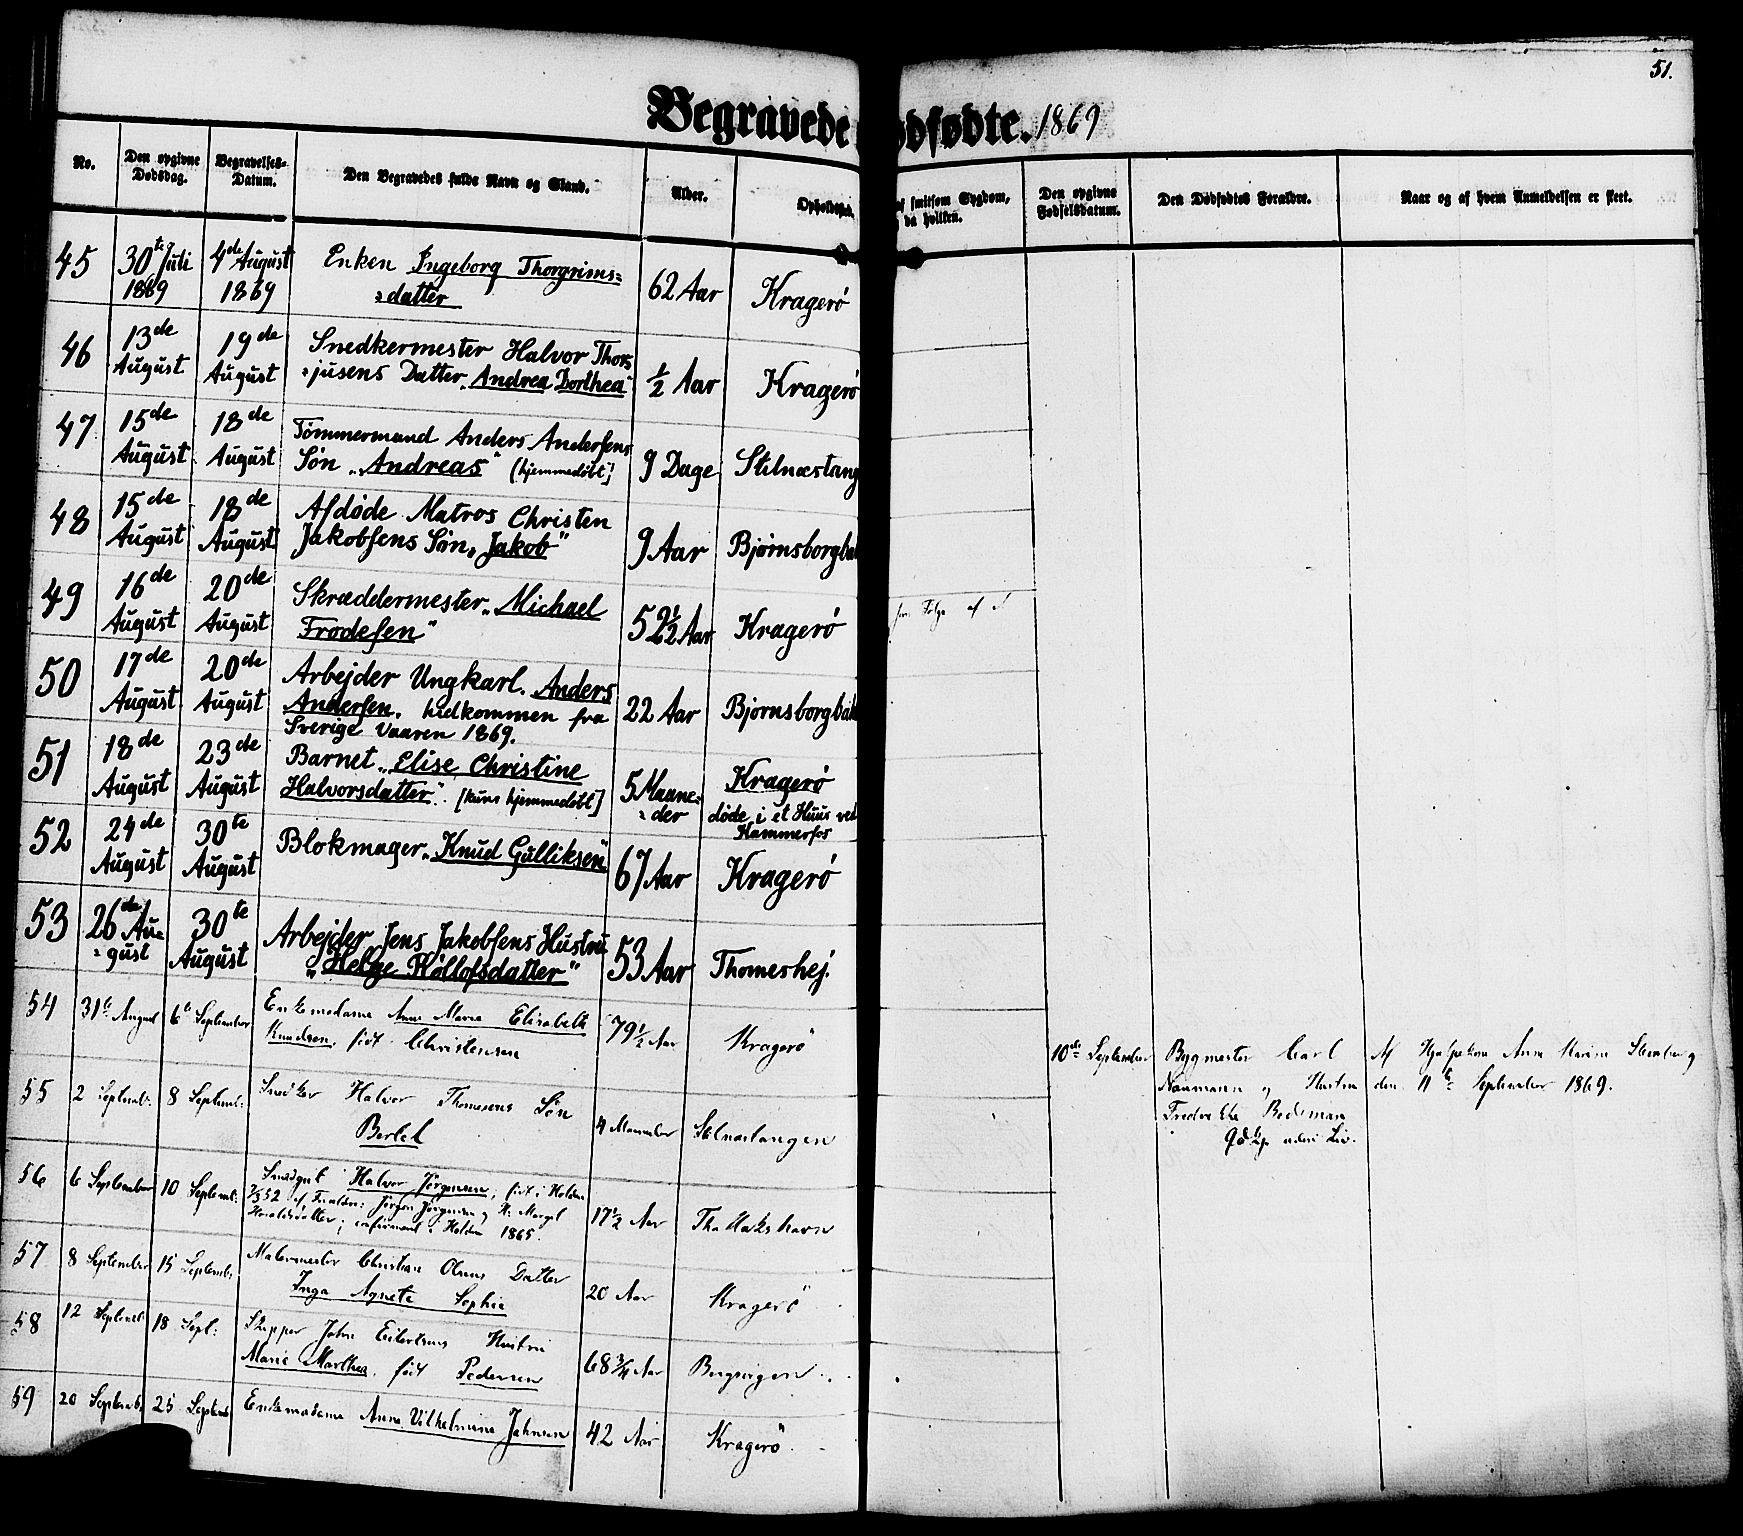 51.
Begravede
ødfødte. 1869
No.
Den opgivne Dødsdag.
Begravelses-Datum.
Den Begravedes fulde Navn og Stand.
Alder.
Opholdssted.
af smitsom Sygdom, da hvilken.
Den opgivne Fødselsdatum.
Den Dødfødtes Forældre.
Naar og af hvem Anmeldelsen er skeet.
45 30te Juli 1869 4de August 1869 Enken Ingeborg Thorgrims=
=datter 62 Aar Kragerö
46 13de August 19de August Snedkermester Halvor Thors
=jusens Datter „Andrea Dorthea" ½ Aar Kragerö
47 15de August 18de August Tömmermand Anders Andersens
Søn „Andreas" (hjemmedøbt) 9 Dage Stilnæstang
48 15de August 18de August Afdøde Matros Christen
Jakobsens Søn „Jakob" 9 Aar Bjørnsborgbak
49 16de August 20de August Skræddermester „Michael
Frodesen" 52½ Aar Kragerö
for Følge af
50 17de August 20de August Arbejder Ungkarl. Anders
Andersen, hidkommen fra
Sverige Vaaren 1869. 22 Aar Bjørnsborgbak
51 18de August 23de August Barnet „Elise Christine
Halvorsdatter". (kun hjemmedøbt) 5 Maane=
=der Kragerö
døde i et Huus ved
Kammerfos
52 24de August 30te August Blokmager „Knud Gulliksen" 67 Aar Kragerö
53 26de Au=
=gust 30te August Arbejder Jens Jakobsens Hustru
„Helge Röllofsdatter" 53 Aar Thomeshej.
54 31te August 6te September Enkemadame Anne Marie Elisabeth
Knudsen, født Christensen 79½ Aar Kragerö
10de September Bygmester Carl
Naumann og Hustru
Fredrikke Bodeman
uden Liv.
Af Hjelpekone Anne Karine Stenberg
den 11te September 1869.
55 2 Septemb: 8 Septemb: Snedker Halvor Thomesens Søn
Bertel 4 Maaneder Stilnæstangen
56 6 September 10 Septemb: Smedgut Halvor Jörgensen, født i Holden
1852 af Forældre: Jörgen Jörgensen og H: Margit
Haraldsdatter; confirmeret i Holden 1865. 17½ Aar Thallakshavn
57 8 September 15 Septemb: Malermester Christian Olsens Datter
Inga Agnete Sophie 20 Aar Kragerö
58 12 Septemb: 18 Sept: Skipper John Eilertsens Hustru
Marie Marthea, født Pedersen 68¾ Aar
59 20 Septemb: 25 Septemb: Enkemadame Anne Vilhelmine Johnsen 42 Aar Kragerö